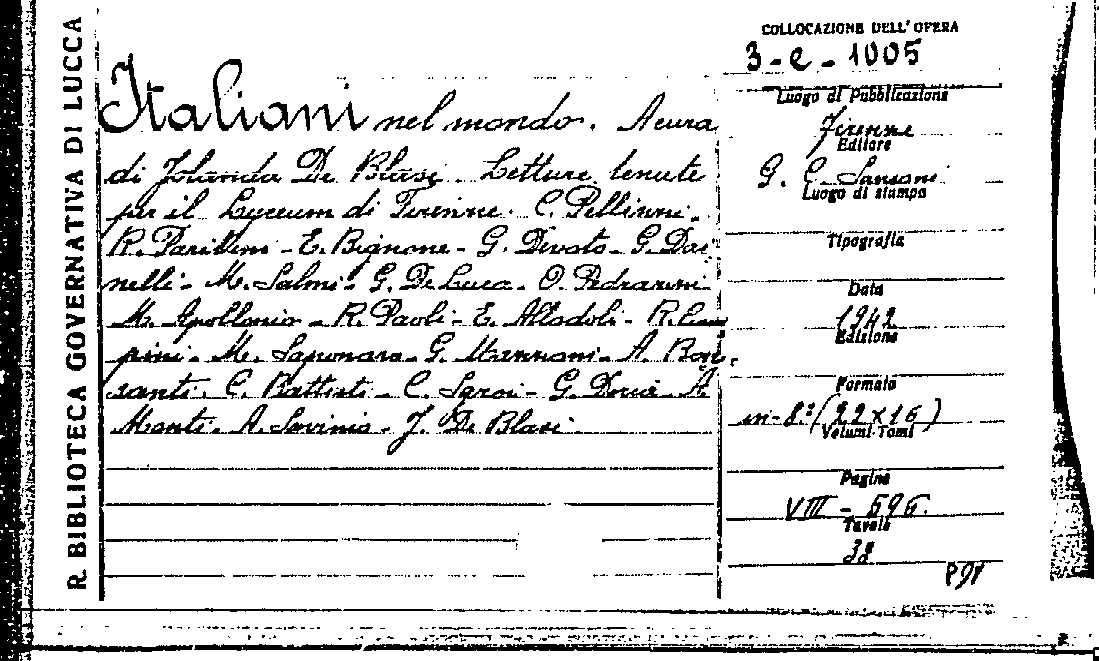 R. BIBLIOTECA GOVERNATIVA DI LUCCA
Italiani nel mondo. A cura
di Jolanda De Blasi. Letture tenute
per il Lyceum di Firenze. C. Pellizzi -
R. Paribeni - E. Bignone - G. Devoto - G. Dai
nelli - M. Salmi - G. De Luca - O. Pedrazzini
M. Apollonio - R. Paoli - E. Allodoli - R. Ciam
pini - M. Saponaro - G. Manzoni - A. Bon-
santi. C. Battisti - C. Sgroi - G. Doria - A.
Monti. A. Savinio - J. De Blasi.
COLLOCAZIONE DELL'OPERA
3-e-1005
Luogo di Pubblicazione
Firenze
Editore
G. C. Sansoni
Luogo di stampa
Tipografia
Data
1942
Edizione
Formato
in-8º (22x16)
Volumi-Tomi
Pagine
VIII - 696.
Tavole
38